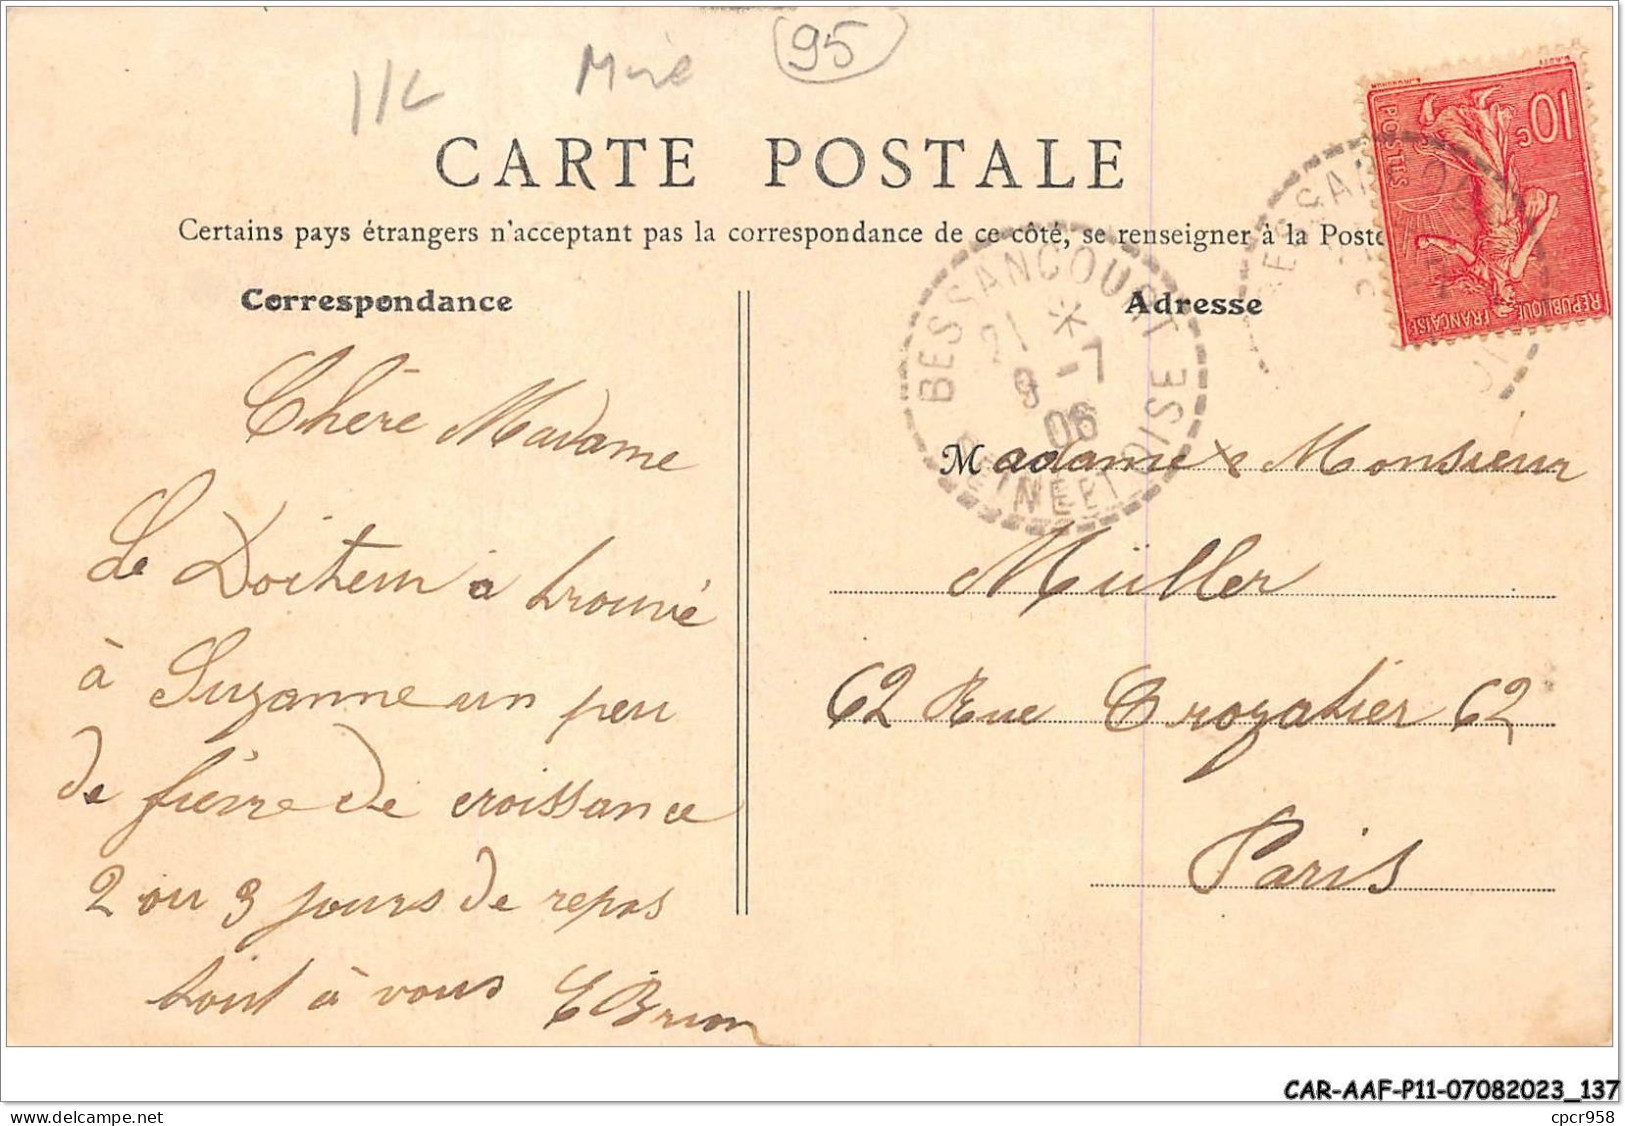 11L Mué 95
CARTE POSTALE
Certains pays étrangers n'acceptent pas la correspondance de ce côté, se renseigner à la Poste
Correspondance
Chère Madame
Le Docteur a trouvé
à Suzanne un peu
de fièvre de croissance
2 ou 3 jours de repos
tout à vous E Brion
Adresse
Madame & Monsieur
Müller
62 Rue Crozatier 62
Paris
BESSANCOURT
21 *
9 -7
06
SEINE ET OISE
10c
POSTES
REPUBLIQUE FRANÇAISE
CAR-AAF-P11-07082023_137
delcampe.net
cpcr958